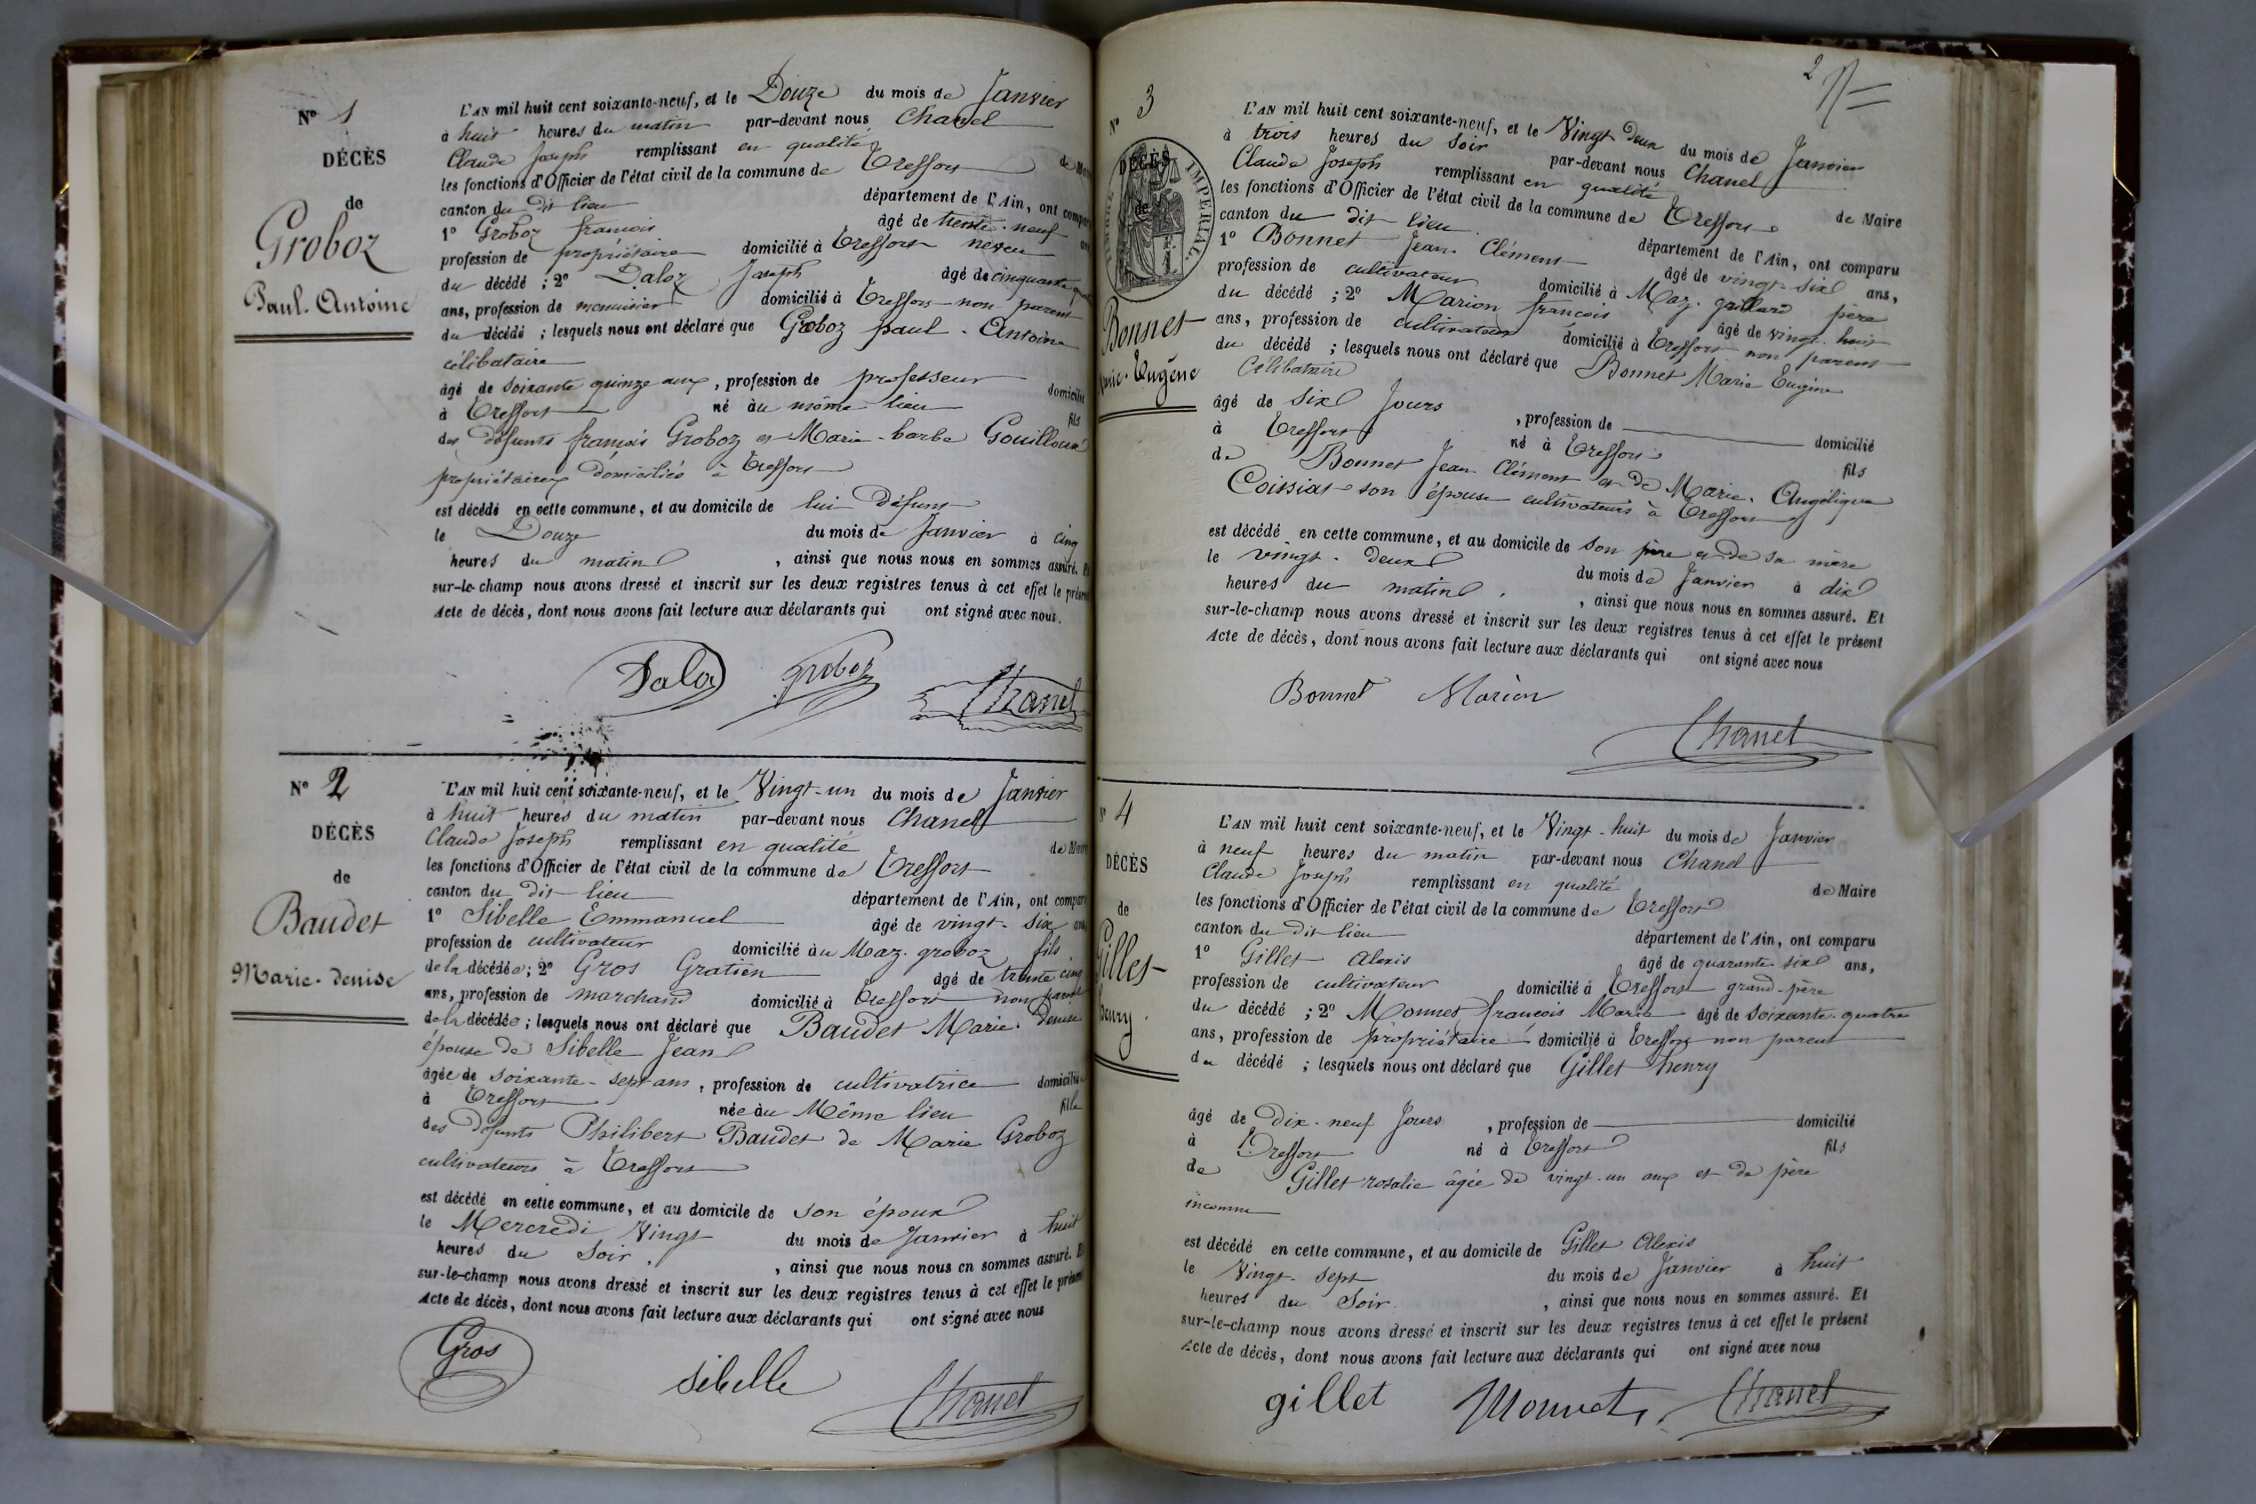 N° 1
DÉCÈS
de
Groboz
Paul-Antoine
L'AN mil huit cent soixante-neuf, et le Douze du mois de Janvier
à huit heures du matin par-devant nous Chanel
Claude Joseph remplissant en qualité de Maire
les fonctions d'Officier de l'état civil de la commune de Treffort
canton du dit lieu département de l'Ain, ont comparu
1° Groboz francois âgé de trente-neuf ans
profession de propriétaire domicilié à Treffort neveu
du décédé ; 2° Daloz Joseph âgé de cinquante
ans, profession de menuisier domicilié à Treffort non parent
du décédé ; lesquels nous ont déclaré que Groboz paul-Antoine
célibataire
âgé de soixante quinze ans, profession de professeur domicilié
à Treffort né au même lieu fils
des défunts françois Groboz et Marie-barbe Gouilloux
propriétaires domiciliés à Treffort
est décédé en cette commune, et au domicile de lui défunt
le Douze du mois de Janvier à cinq
heures du matin, ainsi que nous nous en sommes assuré. Et
sur-le-champ nous avons dressé et inscrit sur les deux registres tenus à cet effet le présent
Acte de décès, dont nous avons fait lecture aux déclarants qui ont signé avec nous.
Daloz Groboz Chanel
N° 2
DÉCÈS
de
Baudet
Marie-denise
L'AN mil huit cent soixante-neuf, et le Vingt-un du mois de Janvier
à huit heures du matin par-devant nous Chanel
Claude Joseph remplissant en qualité de Maire
les fonctions d'Officier de l'état civil de la commune de Treffort
canton du dit lieu département de l'Ain, ont comparu
1° Sibelle Emmanuel âgé de vingt-six ans
profession de cultivateur domicilié au Maz-groboz fils
de la décédée ; 2° Gros Gratien âgé de trente cinq
ans, profession de marchand domicilié à Treffort non parent
de la décédée ; lesquels nous ont déclaré que Baudet Marie-Denise
épouse de Sibelle Jean
âgée de soixante-sept ans, profession de cultivatrice domiciliée
à Treffort née au Même lieu fille
des défunts Philibert Baudet de Marie Groboz
cultivateurs à Treffort
est décédé en cette commune, et au domicile de son époux
le Mercredi Vingt du mois de Janvier à huit
heures du Soir, ainsi que nous nous en sommes assuré. Et
sur-le-champ nous avons dressé et inscrit sur les deux registres tenus à cet effet le présent
Acte de décès, dont nous avons fait lecture aux déclarants qui ont signé avec nous
Gros sibelle Chanel
2
N° 3
DÉCÈS
de
TIMBRE IMPERIAL.
Bonnet
Marie-Eugène
L'AN mil huit cent soixante-neuf, et le Vingt deux du mois de Janvier
à trois heures du Soir par-devant nous Chanel
Claude Joseph remplissant en qualité de Maire
les fonctions d'Officier de l'état civil de la commune de Treffort
canton du dit lieu département de l'Ain, ont comparu
1° Bonnet Jean-Clément âgé de vingt-six ans,
profession de cultivateur domicilié à Maz-grillard père
du décédé ; 2° Marion françois âgé de vingt-huit
ans, profession de cultivateur domicilié à Treffort non parent
du décédé ; lesquels nous ont déclaré que Bonnet Marie Eugène
Célibataire
âgé de six Jours, profession de domicilié
à Treffort né à Treffort fils
de Bonnet Jean-Clément et de Marie-Angélique
Coissiat son épouse cultivateurs à Treffort
est décédé en cette commune, et au domicile de son père et de sa mère
le vingt-deux du mois de Janvier à dix
heures du matin, ainsi que nous nous en sommes assuré. Et
sur-le-champ nous avons dressé et inscrit sur les deux registres tenus à cet effet le présent
Acte de décès, dont nous avons fait lecture aux déclarants qui ont signé avec nous
Bonnet Marion
Chanel
N° 4
DÉCÈS
de
Gillet
henry.
L'AN mil huit cent soixante-neuf, et le Vingt-huit du mois de Janvier
à neuf heures du matin par-devant nous Chanel
Claude Joseph remplissant en qualité de Maire
les fonctions d'Officier de l'état civil de la commune de Treffort
canton du dit lieu département de l'Ain, ont comparu
1° Gillet alexis âgé de quarante-six ans,
profession de cultivateur domicilié à Treffort grand-père
du décédé ; 2° Monnet françois Marie âgé de soixante-quatre
ans, profession de propriétaire domicilié à Treffort non parent
du décédé ; lesquels nous ont déclaré que Gillet henry
âgé de dix-neuf Jours, profession de domicilié
à Treffort né à Treffort fils
de Gillet rosalie âgée de vingt-un ans et de père
inconnu
est décédé en cette commune, et au domicile de Gillet Alexis
le Vingt-sept du mois de Janvier à huit
heures du Soir, ainsi que nous nous en sommes assuré. Et
sur-le-champ nous avons dressé et inscrit sur les deux registres tenus à cet effet le présent
Acte de décès, dont nous avons fait lecture aux déclarants qui ont signé avec nous
gillet Monnet Chanel